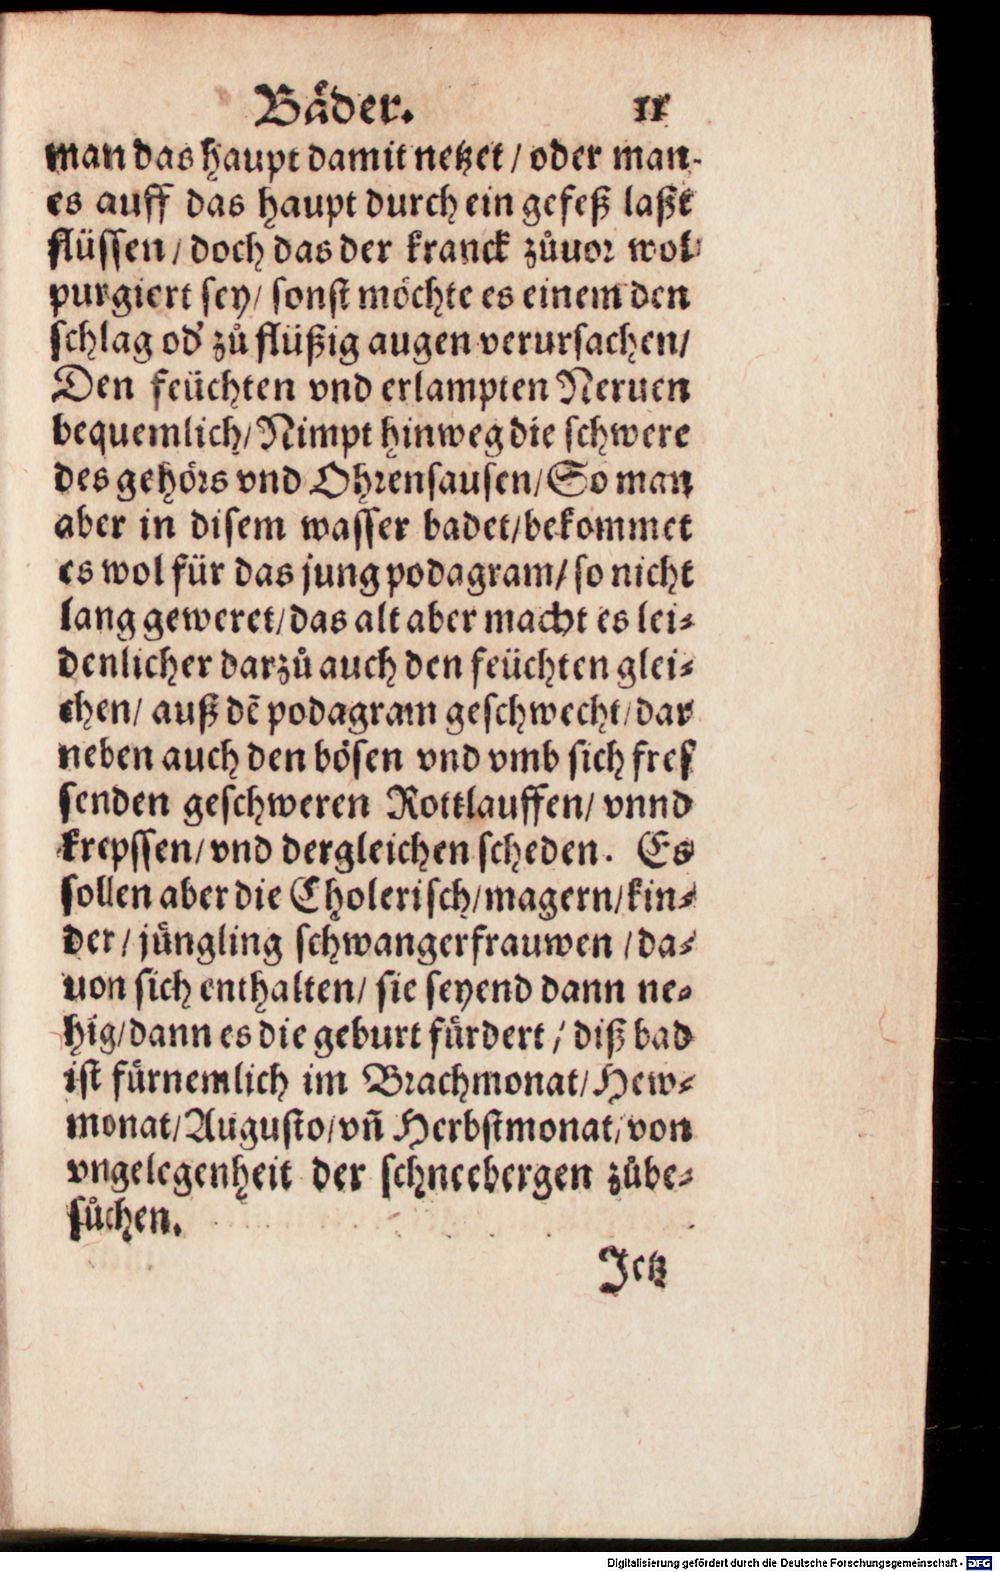 Bäder. 11
man das haupt damit netzet / oder man
es auff das haupt durch ein gefeß laßt
flüssen / doch das der kranck zůuor wol
purgiert sey / sonst möchte es einem den
schlag od' zů flüßig augen verursachen /
Den feüchten vnd erlampten Neruen
bequemlich / Nimpt hinweg die schwere
des gehörs vnd Ohrensausen / So man
aber in disem wasser badet / bekommet
es wol für das jung podagram / so nicht
lang geweret / das alt aber macht es lei⸗
denlicher darzů auch den feüchten glei⸗
chen / auß dẽ podagram geschwecht / dar
neben auch den bösen vnd vmb sich fres
senden geschweren Rottlauffen / vnnd
krepssen / vnd dergleichen scheden. Es
sollen aber die Cholerisch / magern / kin⸗
der / jüngling schwangerfrauwen / da⸗
uon sich enthalten / sie seyend dann ne⸗
hig / dann es die geburt fürdert / diß bad
ist fürnemlich im Brachmonat / Hew⸗
monat / Augusto / vñ Herbstmonat / von
vngelegenheit der schneebergen zůbe⸗
sůchen.
Jetz
Digitalisierung gefördert durch die Deutsche Forschungsgemeinschaft - DFG